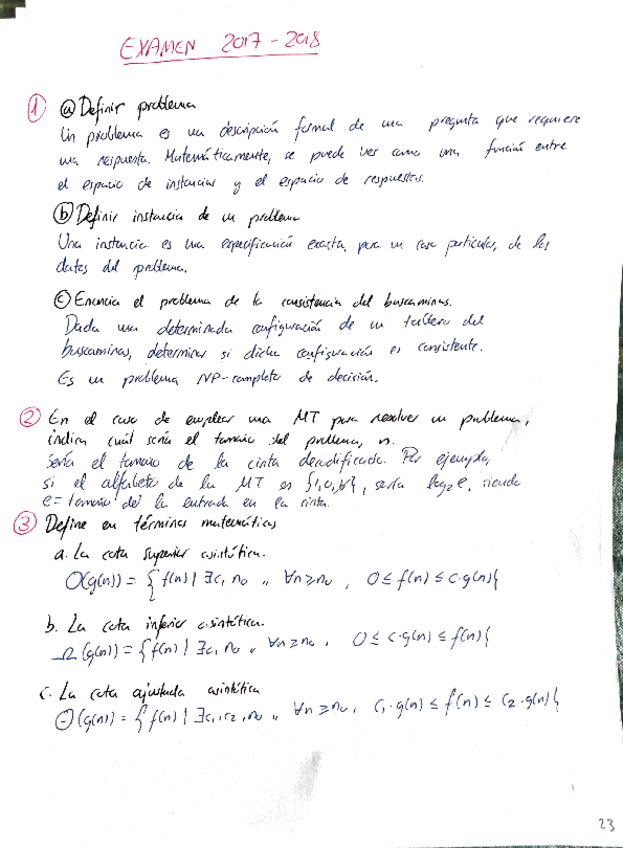 EXAMEN 2017-2018
① ⓐ Definir problema
Un problema es una descripción formal de una pregunta que requiere
una respuesta. Matemáticamente, se puede ver como una función entre
el espacio de instancias y el espacio de respuestas.
ⓑ Definir instancia de un problema
Una instancia es una especificación exacta, para un caso particular, de los
datos del problema.
ⓒ Enuncia el problema de la consistencia del buscaminas.
Dada una determinada configuración de un tablero del
buscaminas, determinar si dicha configuración es consistente.
Es un problema NP-completo de decisión.
② En el caso de emplear una MT para resolver un problema,
indica cuál sería el tamaño del problema, n.
Sería el tamaño de la cinta decodificada. Por ejemplo,
si el alfabeto de la MT es {1,0,b}, sería log₂ e, siendo
e = tamaño de la entrada en la cinta.
③ Define en términos matemáticos
a. La cota superior asintótica.
O(g(n)) = { f(n) | ∃c, n₀ ,, ∀n≥n₀ , 0 ≤ f(n) ≤ c·g(n) {
b. La cota inferior asintótica.
Ω(g(n)) = { f(n) | ∃c, n₀ ,, ∀n≥n₀ , 0 ≤ c·g(n) ≤ f(n) {
c. La cota ajustada asintótica
Θ(g(n)) = { f(n) | ∃c₁, c₂, n₀ ,, ∀n≥n₀, c₁·g(n) ≤ f(n) ≤ c₂·g(n) {
23